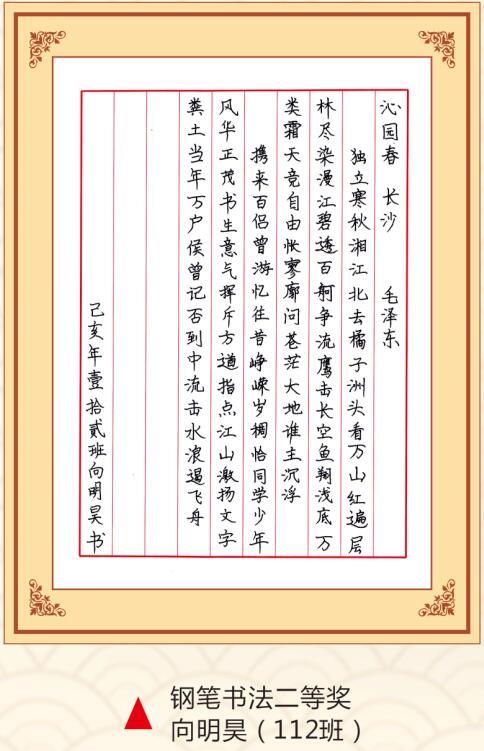 沁园春 长沙 毛泽东
独立寒秋湘江北去橘子洲头看万山红遍层
林尽染漫江碧透百舸争流鹰击长空鱼翔浅底万
类霜天竞自由怅寥廓问苍茫大地谁主沉浮
携来百侣曾游忆往昔峥嵘岁稠恰同学少年
风华正茂书生意气挥斥方遒指点江山激扬文字
粪土当年万户侯曾记否到中流击水浪遏飞舟
己亥年壹拾贰班向明昊书
钢笔书法二等奖
向明昊（112班）